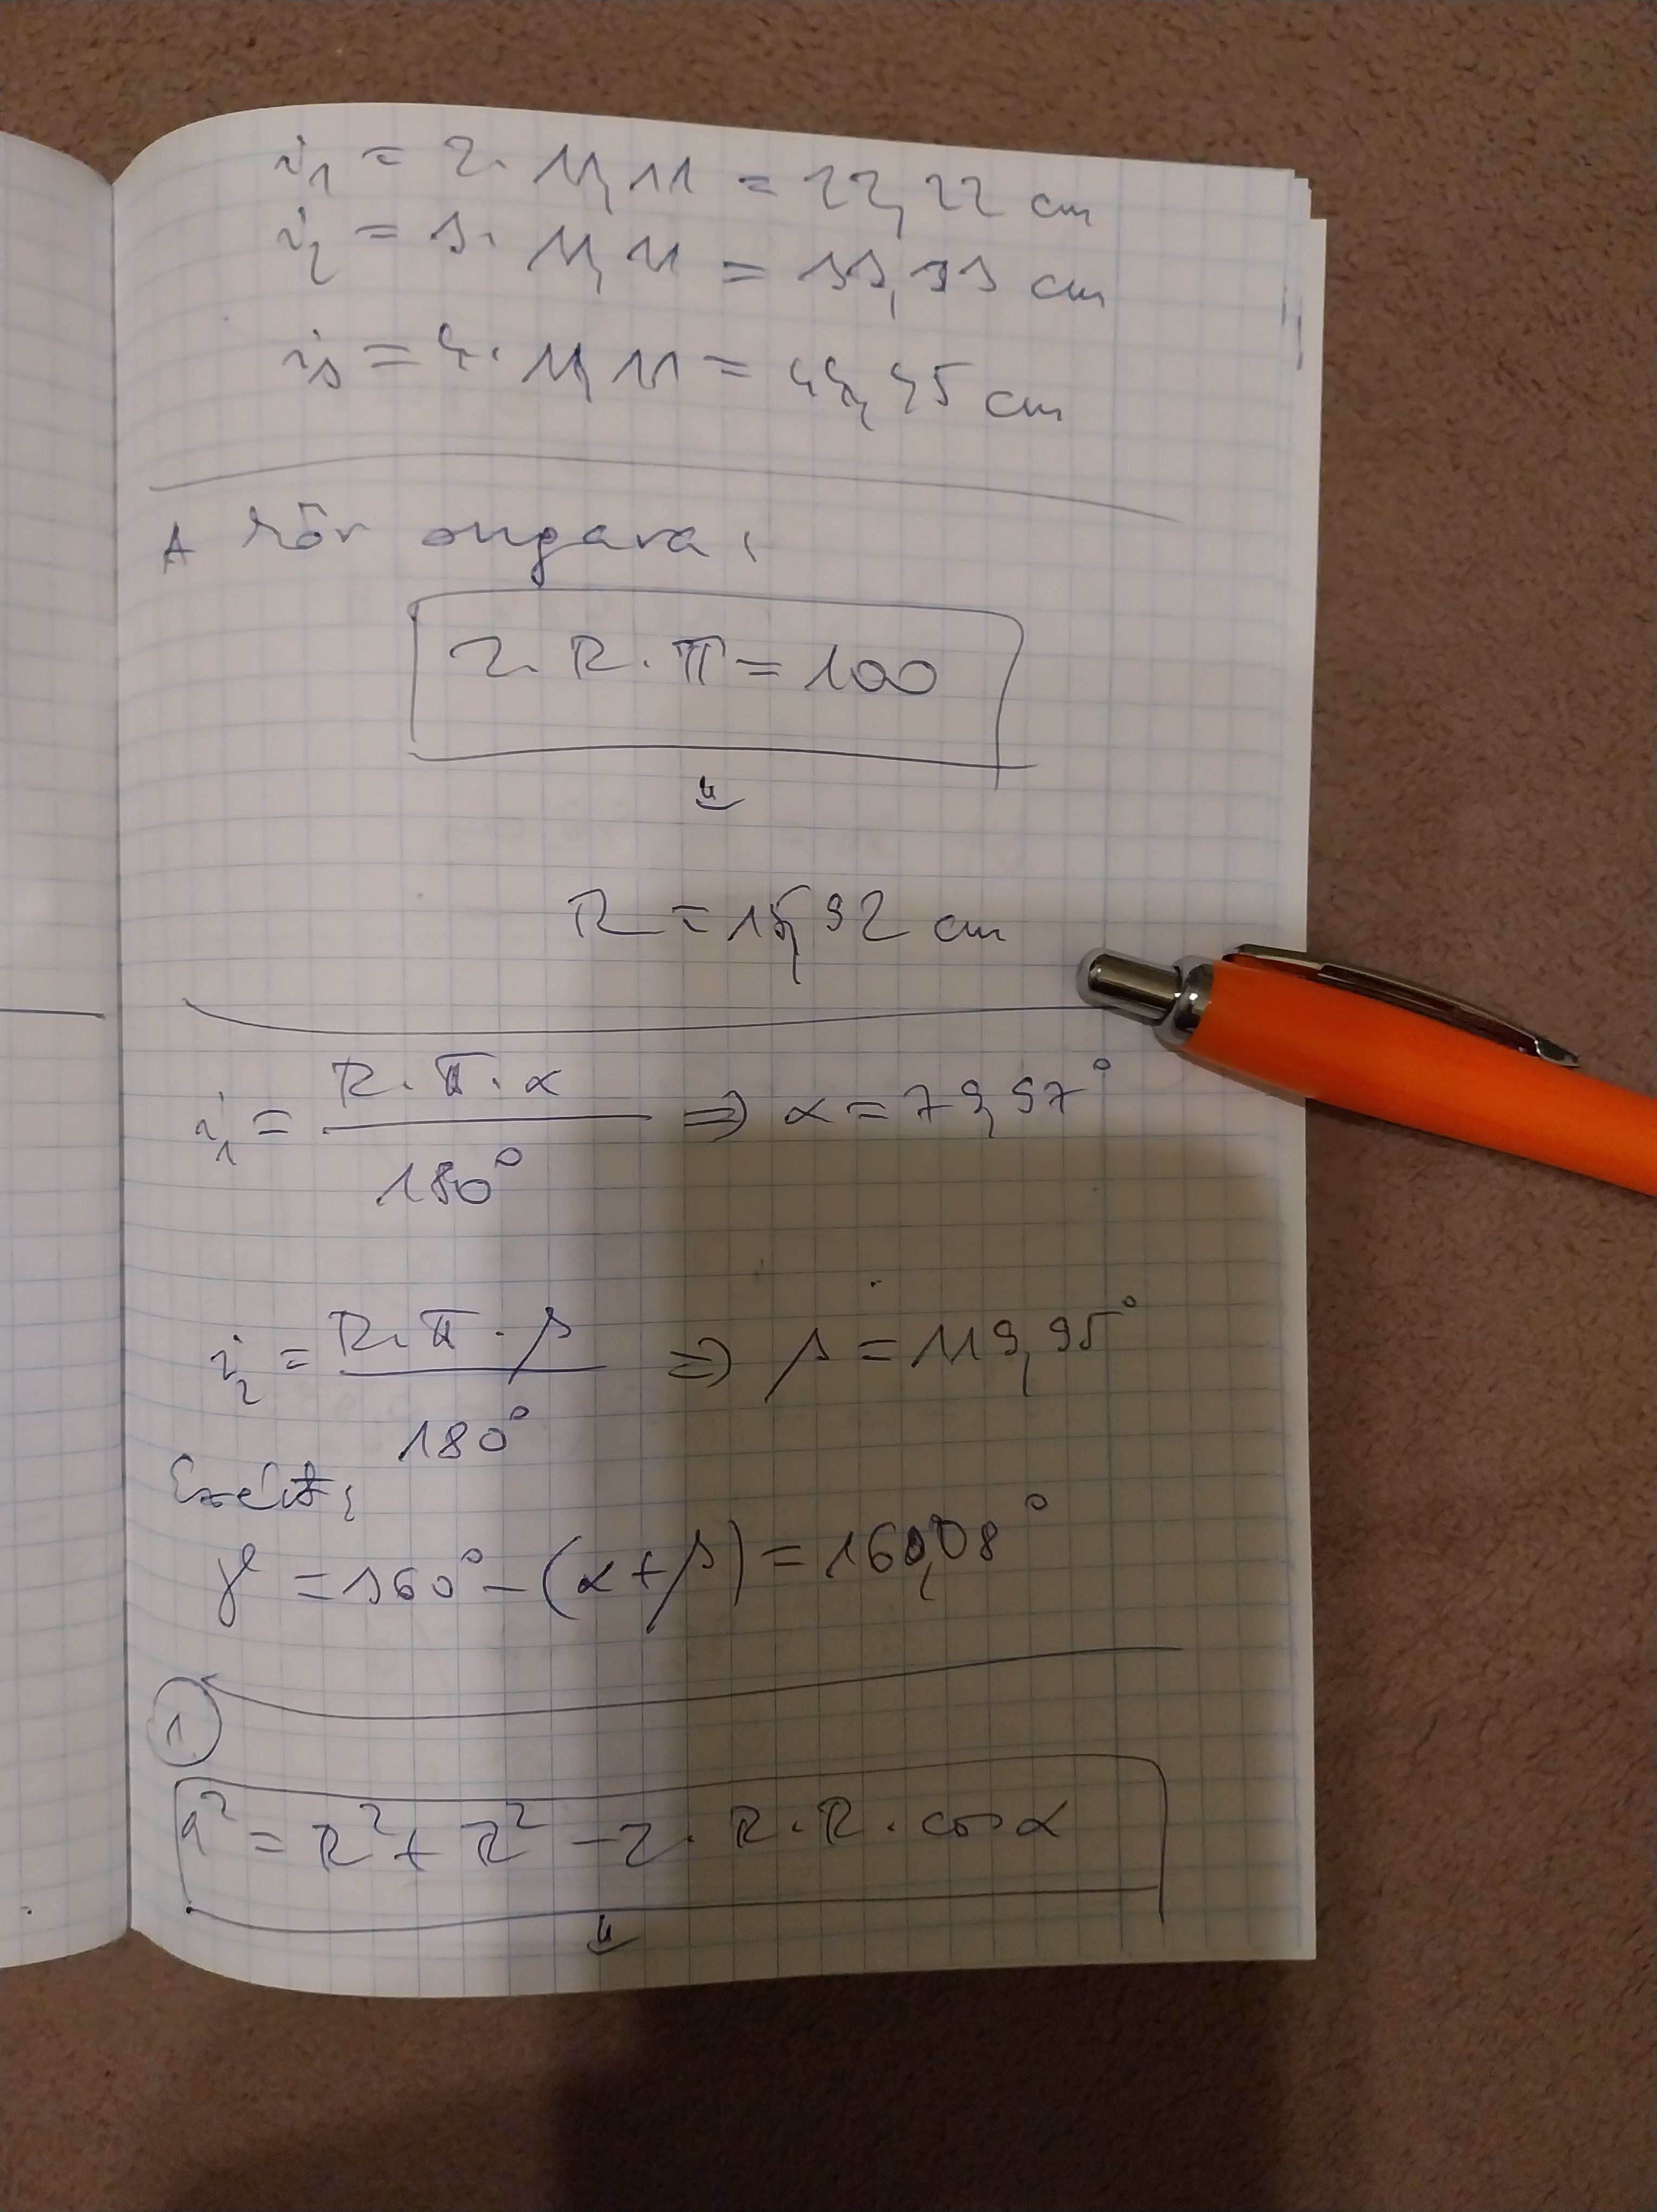 i₁ = 2 · 11,11 = 22,22 cm
i₂ = 3 · 11,11 = 33,33 cm
i₃ = 4 · 11,11 = 44,45 cm
A kör sugara:
2 · R · π = 100
⇓
R = 15,92 cm
i₁ = R · π · α / 180° ⇒ α = 79,97°
i₂ = R · π · β / 180° ⇒ β = 119,95°
Ezért:
γ = 360° − (α + β) = 160,08°
1
a² = R² + R² − 2 · R · R · cos α
⇓